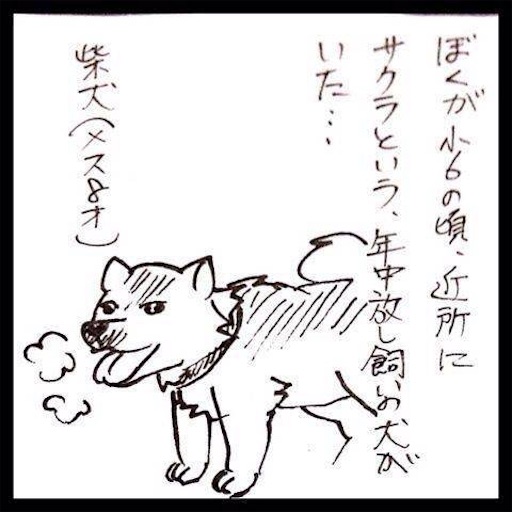 ぼくが小6の頃、近所に
サクラという、年中放し飼いの犬が
いた…
柴犬(メス8才)